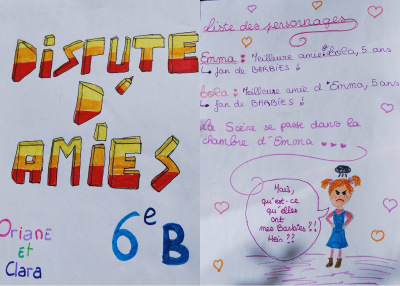 DISPUTE
D'
AMIES
6e B
Oriane
et
Clara
Liste des personnages
Emma : Meilleure amie Lola, 5 ans
↳ fan de BARBIES !
Lola : Meilleure amie d'Emma, 5 ans
↳ fan de BARBIES !
La Scène se passe dans la
chambre d'Emma
Mais,
qu'est-ce
qu'elles
ont
mes Barbies ?!
Hein ??